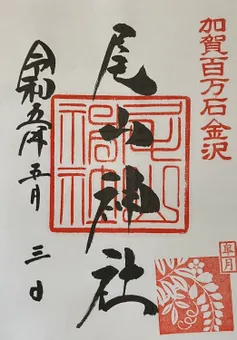 加賀百万石金沢
尾山神社
尾山神社
皐月
令和五年五月三日